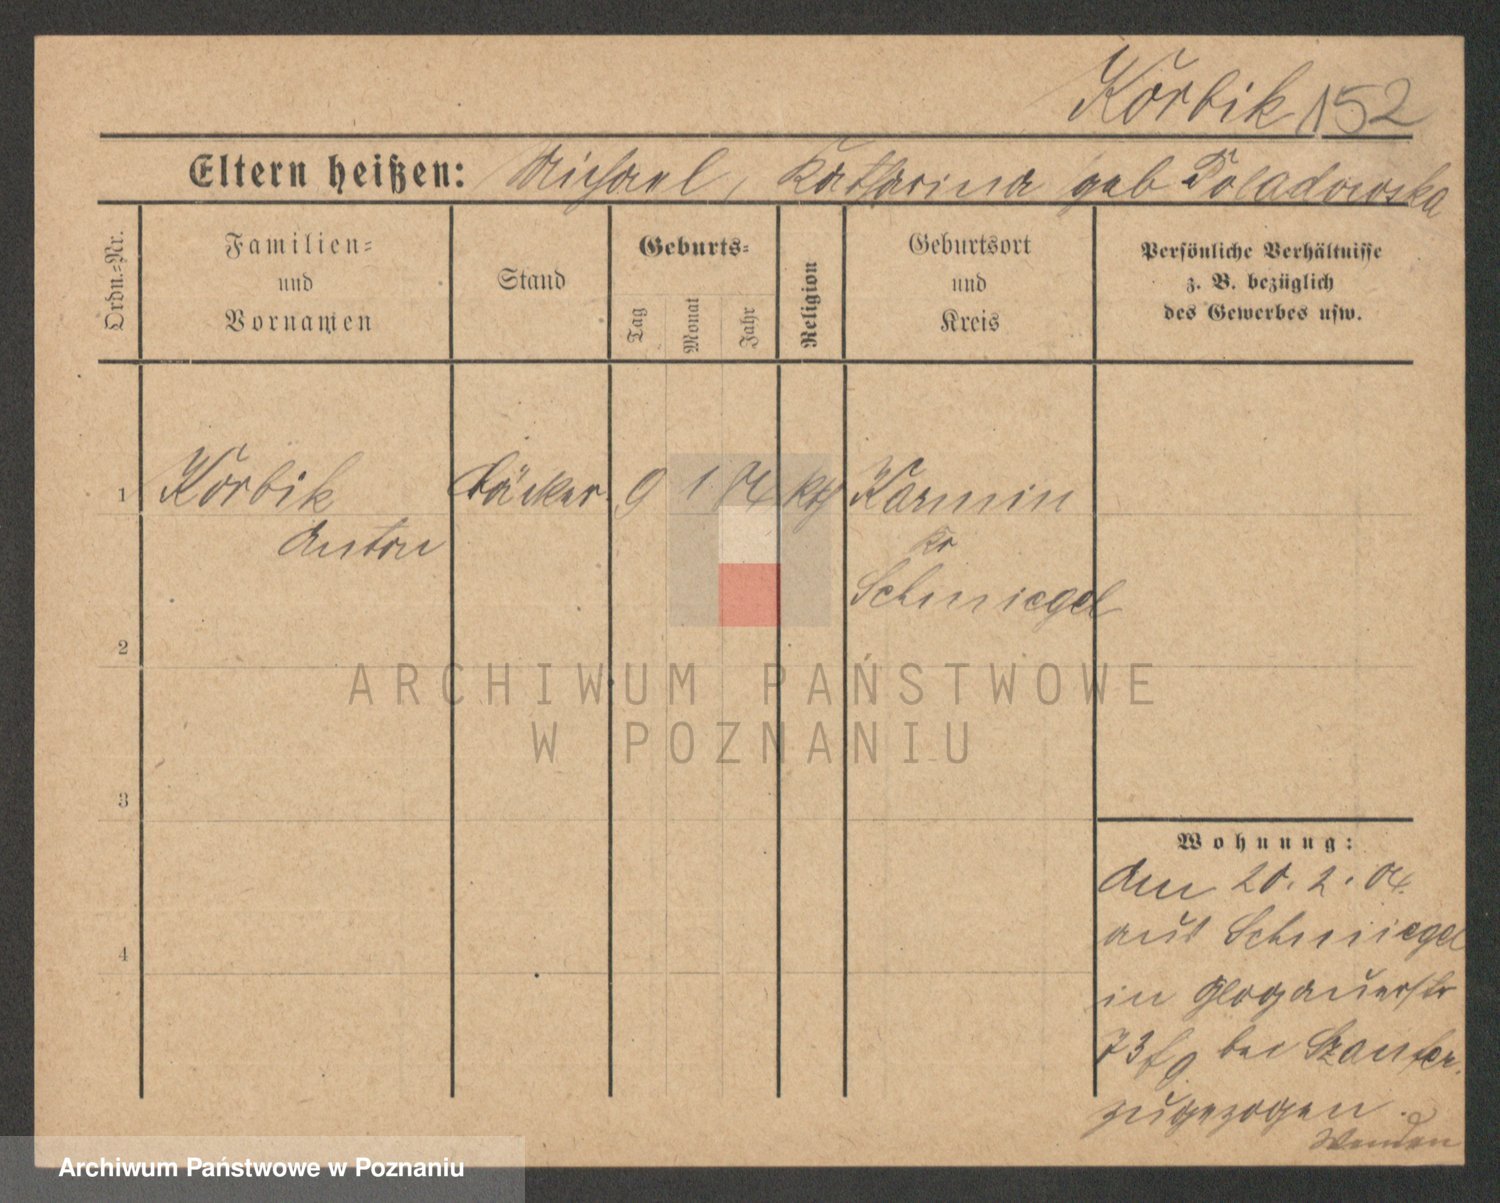 Körbik 152
Eltern heißen: Michael, Katharina geb Poladowska
Ordn.-Nr.
Familien-
und
Vornamen
Stand
Geburts-
Tag
Monat
Jahr
Religion
Geburtsort
und
Kreis
Persönliche Verhältnisse
z. B. bezüglich
des Gewerbes usw.
1 Körbik Bäcker 9 1 kth Karmin
Anton Kr
Schmiegel
2
3
4
Wohnung:
den 20. 2. 04.
aus Schmiegel
in Glogauerstr
73 bei
zugezogen.
Wenden
ARCHIWUM PAŃSTWOWE
W POZNANIU
Archiwum Państwowe w Poznaniu